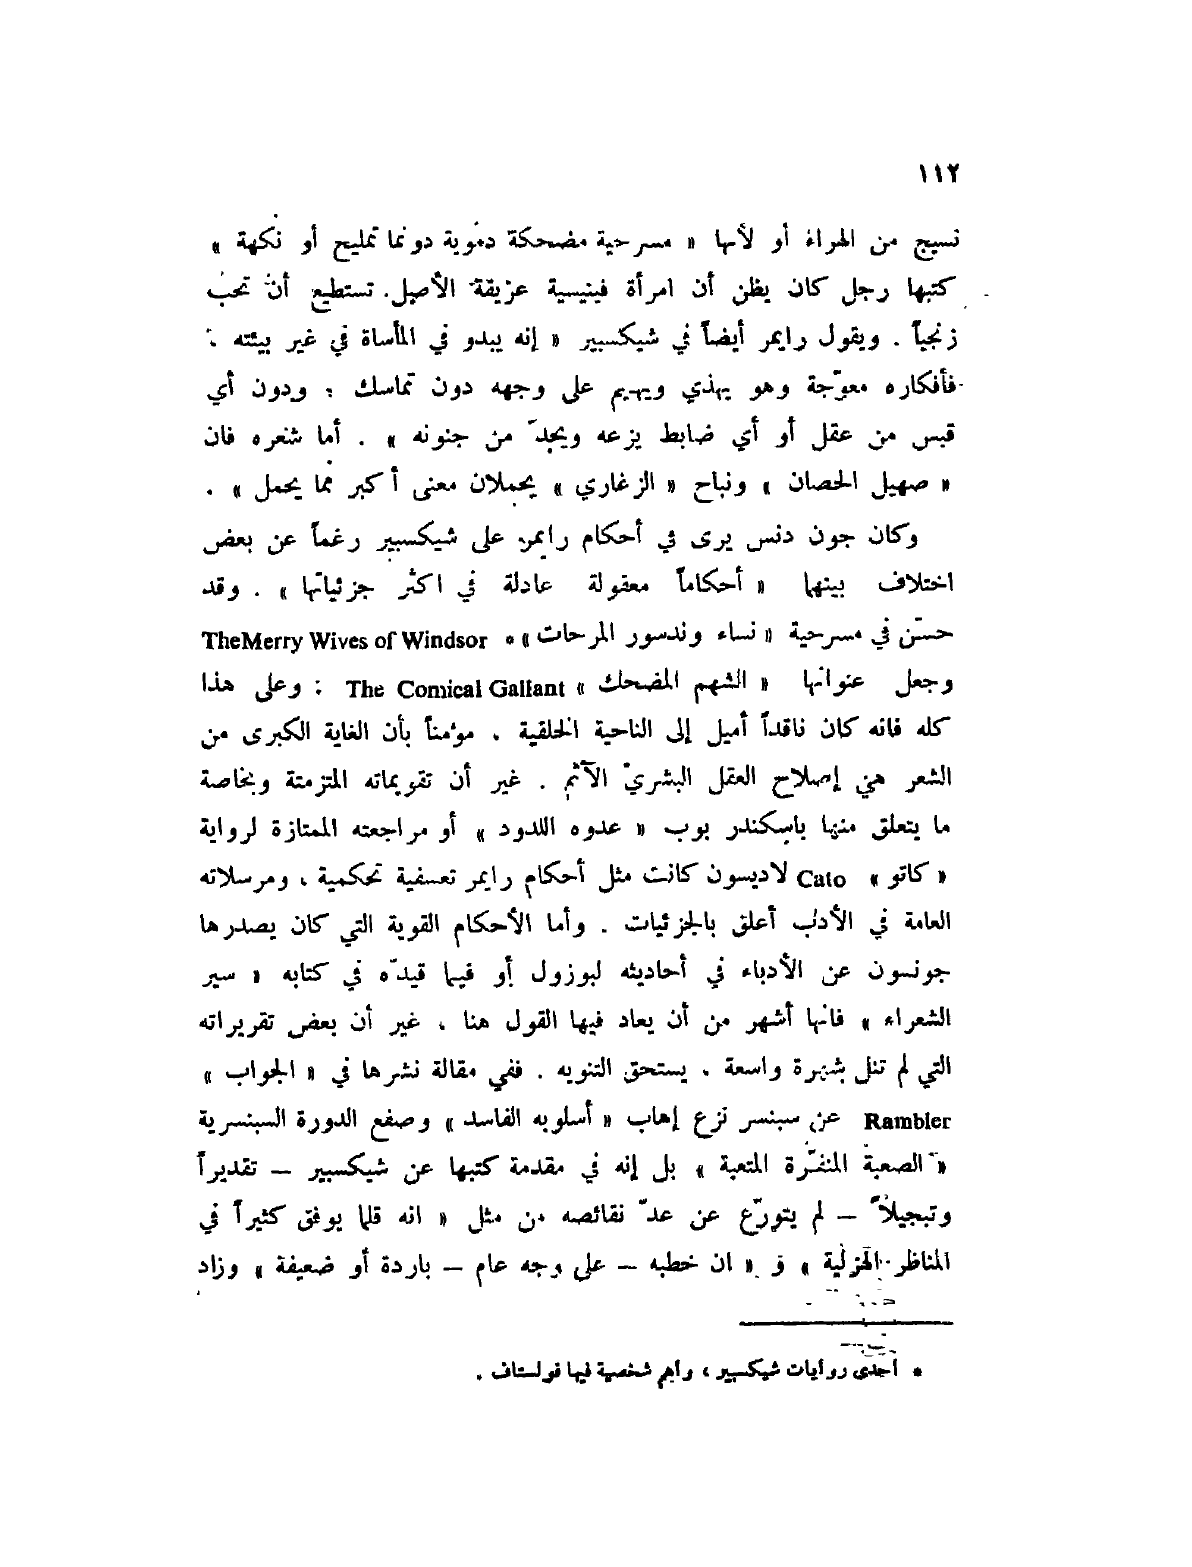 ١١٢
نسيج من الهراء أو لأنها « مسرحية مضحكة دموية دونما تمليح أو نكهة »
كتبها رجل كان يظن أن امرأة فينيسية عريقة الأصل. تستطيع أن تحب
زنجياً . ويقول رايمر أيضاً في شيكسبير « إنه يبدو في المأساة في غير بيئته .
فأفكاره معوّجة وهو يهذي ويهيم على وجهه دون تماسك ؛ ودون أي
قبس من عقل أو أي ضابط يزعه ويحدّ من جنونه » . أما شعره فان
« صهيل الحصان » ونباح « الزغاري » يحملان معنى أكبر مما يحمل » .
وكان جون دنس يرى في أحكام رايمر على شيكسبير رغماً عن بعض
اختلاف بينهما « أحكاماً معقولة عادلة في اكثر جزئياتها » . وقد
حسّن في مسرحية « نساء وندسور المرحات »* TheMerry Wives of Windsor
وجعل عنوانها « الشهم المضحك » The Comical Gallant ؛ وعلى هذا
كله فانه كان ناقداً أميل إلى الناحية الخلقية ، مؤمناً بأن الغاية الكبرى من
الشعر هي إصلاح العقل البشريّ الآثم . غير أن تقويماته المتزمتة وبخاصة
ما يتعلق منها باسكندر بوب « عدوه اللدود » أو مراجعته الممتازة لرواية
« كاتو » Cato لاديسون كانت مثل أحكام رايمر تعسفية تحكمية ، ومرسلاته
العامة في الأدب أعلق بالجزئيات . وأما الأحكام القوية التي كان يصدرها
جونسون عن الأدباء في أحاديثه لبوزول أو فيما قيدّه في كتابه « سير
الشعراء » فانها أشهر من أن يعاد فيها القول هنا ، غير أن بعض تقريراته
التي لم تنل شهرة واسعة ، يستحق التنويه . ففي مقالة نشرها في « الجواب »
Rambler عن سبنسر نزع إهاب « أسلوبه الفاسد » وصفع الدورة السبنسرية
« الصعبة المنفّرة المتعبة » بل إنه في مقدمة كتبها عن شيكسبير – تقديراً
وتبجيلاً – لم يتورّع عن عدّ نقائصه من مثل « انه قلما يوفق كثيراً في
المناظر الهزلية » و « ان خطبه – على وجه عام – باردة أو ضعيفة » وزاد
* احدى روايات شيكسبير ، وأهم شخصية فيها فولستاف .